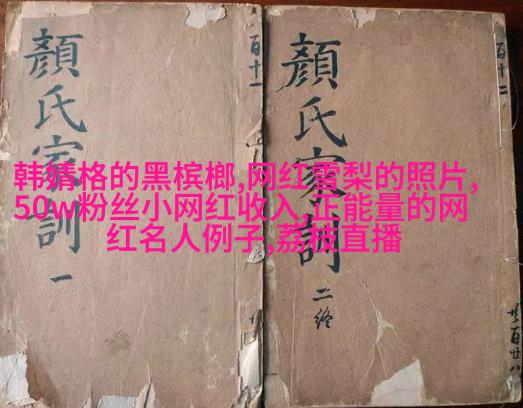 顏氏家訓 一
百十一
顏氏家訓 二終
百十二
韩婧格的黑槟榔,网红雪梨的照片,
50w粉丝小网红收入,正能量的网
红名人例子,荔枝直播